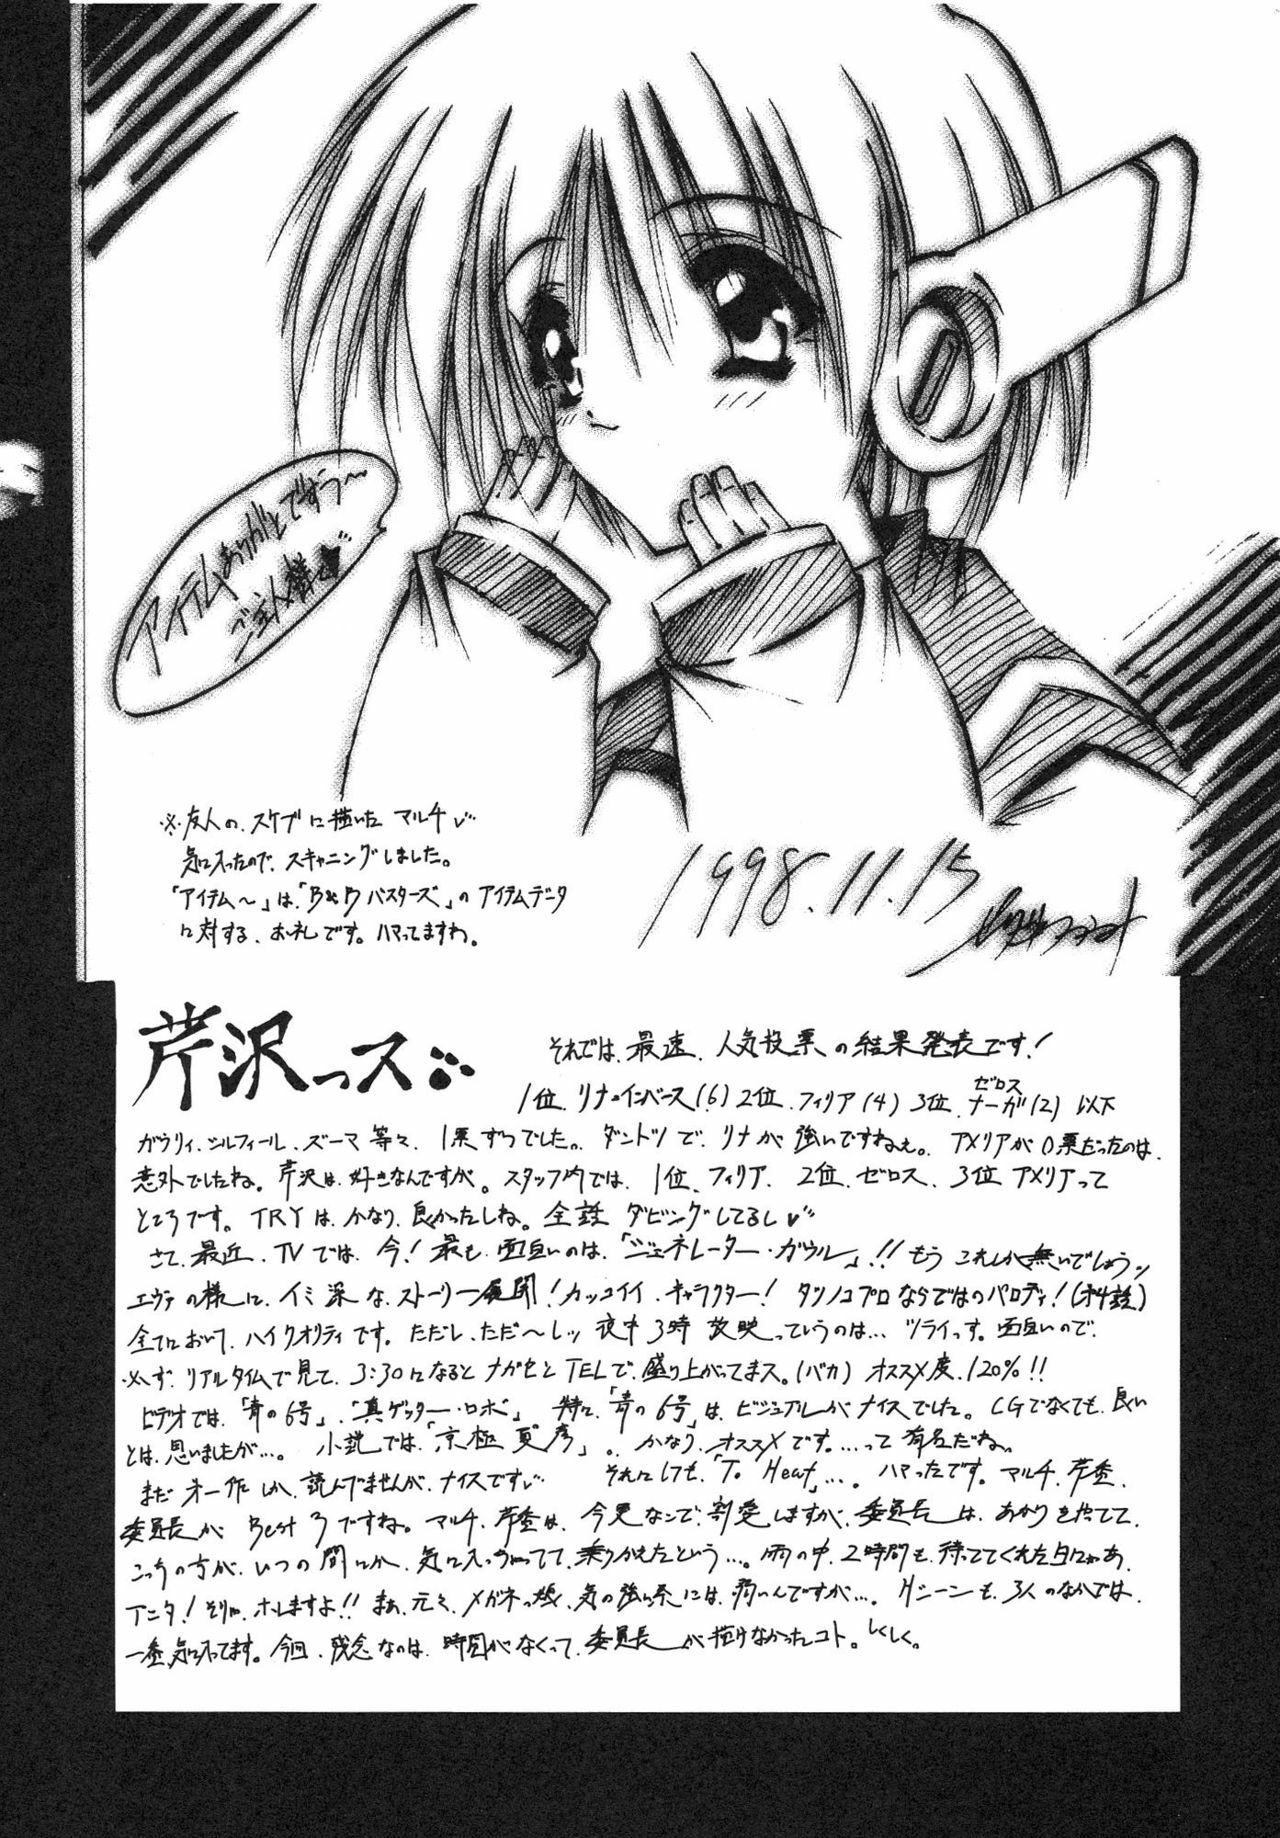 アイテムありがとですぅ〜
ご主人様
※友人の、スケブに描いたマルチ
気に入ったので、スキャニングしました。
「アイテム〜」は、「B&Dバスターズ」のアイテムデータ
に対する、お礼です。ハマってますわ。
1998.11.15
芹沢っス
それでは、最速、人気投票の結果発表です!
1位、リナ=インバース(6) 2位、フィリア(4) 3位、ゼロス ナーガ(2) 以下
ガウリィ、シルフィール、ズーマ等々、1票ずつでした。ダントツで、リナが強いですねぇ。アメリアが0票だったのは、
意外でしたね。芹沢は、好きなんですが。スタッフ内では、1位、フィリア、2位、ゼロス、3位アメリアって
ところです。TRYは、かなり、良かったしね。全話ダビングしてるし
さて、最近、TVでは、今!最も、面白いのは、「ジェネレーター・ガウル」!!もう これしか無いでしょうッ
エヴァの様に、イミ深な、ストーリー展開!カッコイイ、キャラクター!タツノコプロならではのパロディ!(才4話)
全てにおいて、ハイクオリティです。ただし、ただ〜しッ 夜中3時放映っていうのは…ツライっす。面白いので、
必ず、リアルタイムで見て、3:30になるとナガセとTELで、盛り上がってまス。(バカ)オススメ度、120%!!
ビデオでは、「青の6号」、「真ゲッター・ロボ」 特に、「青の6号」は、ビジュアルがナイスでした。CGでなくても、良い
とは、思いましたが…。小説では、「京極夏彦」。かなり、オススメです。…って有名だね。
まだ 才一作しか、読んでませんが、ナイスです それにしても、「To Heart」…。ハマったです。マルチ、芹香、
委員長が Best 3ですね。マルチ、芹香は、今更なんで、割愛しますが、委員長は、あかりを捨てて、
こっちの方が、いつの間にか、気に入っちゃってて、乗りかえたという…。雨の中、2時間も、待っててくれた日にゃあ、
アニタ!そりゃ、ホレますよ!!まぁ、元々、メガネっ娘、気の強い系には、弱いんですが…。Hシーンも、3人のなかでは、
一番、気に入ってます。今回、残念なのは、時間がなくって、委員長が描けなかったコト。しくしく。